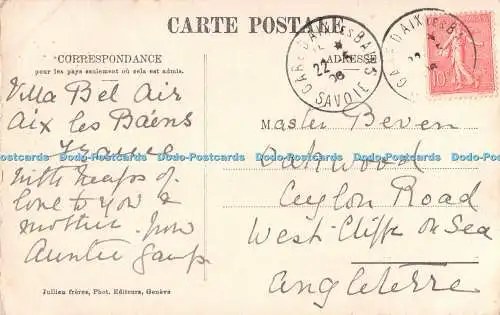 CARTE POSTALE
CORRESPONDANCE
pour les pays seulement où cela est admis.
ADRESSE
GARE D'AIX LES BAINS
22
SAVOIE
GARE D'AIX LES BA
10
Villa Bel Air
Aix les Bains
France
With heaps of
love to you &
mother from
Auntie
Master Beven
Oakwood
Ceylon Road
West-Cliff on Sea
Angleterre
Jullien frères, Phot. Editeurs, Genève
Dodo-Postcards Dodo-Postcards Dodo-Postcards Dodo-Postcards Dodo-Postcards Dodo-Postcards